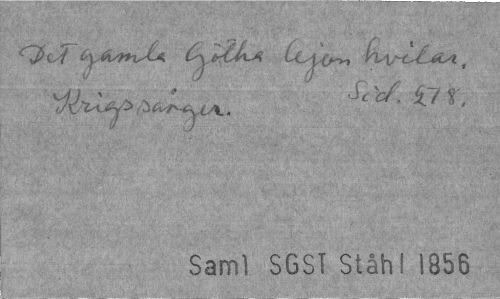 Det gamla Götha lejon hvilar.
Sid. 578.
Krigssånger.
Saml SGST Ståhl 1856